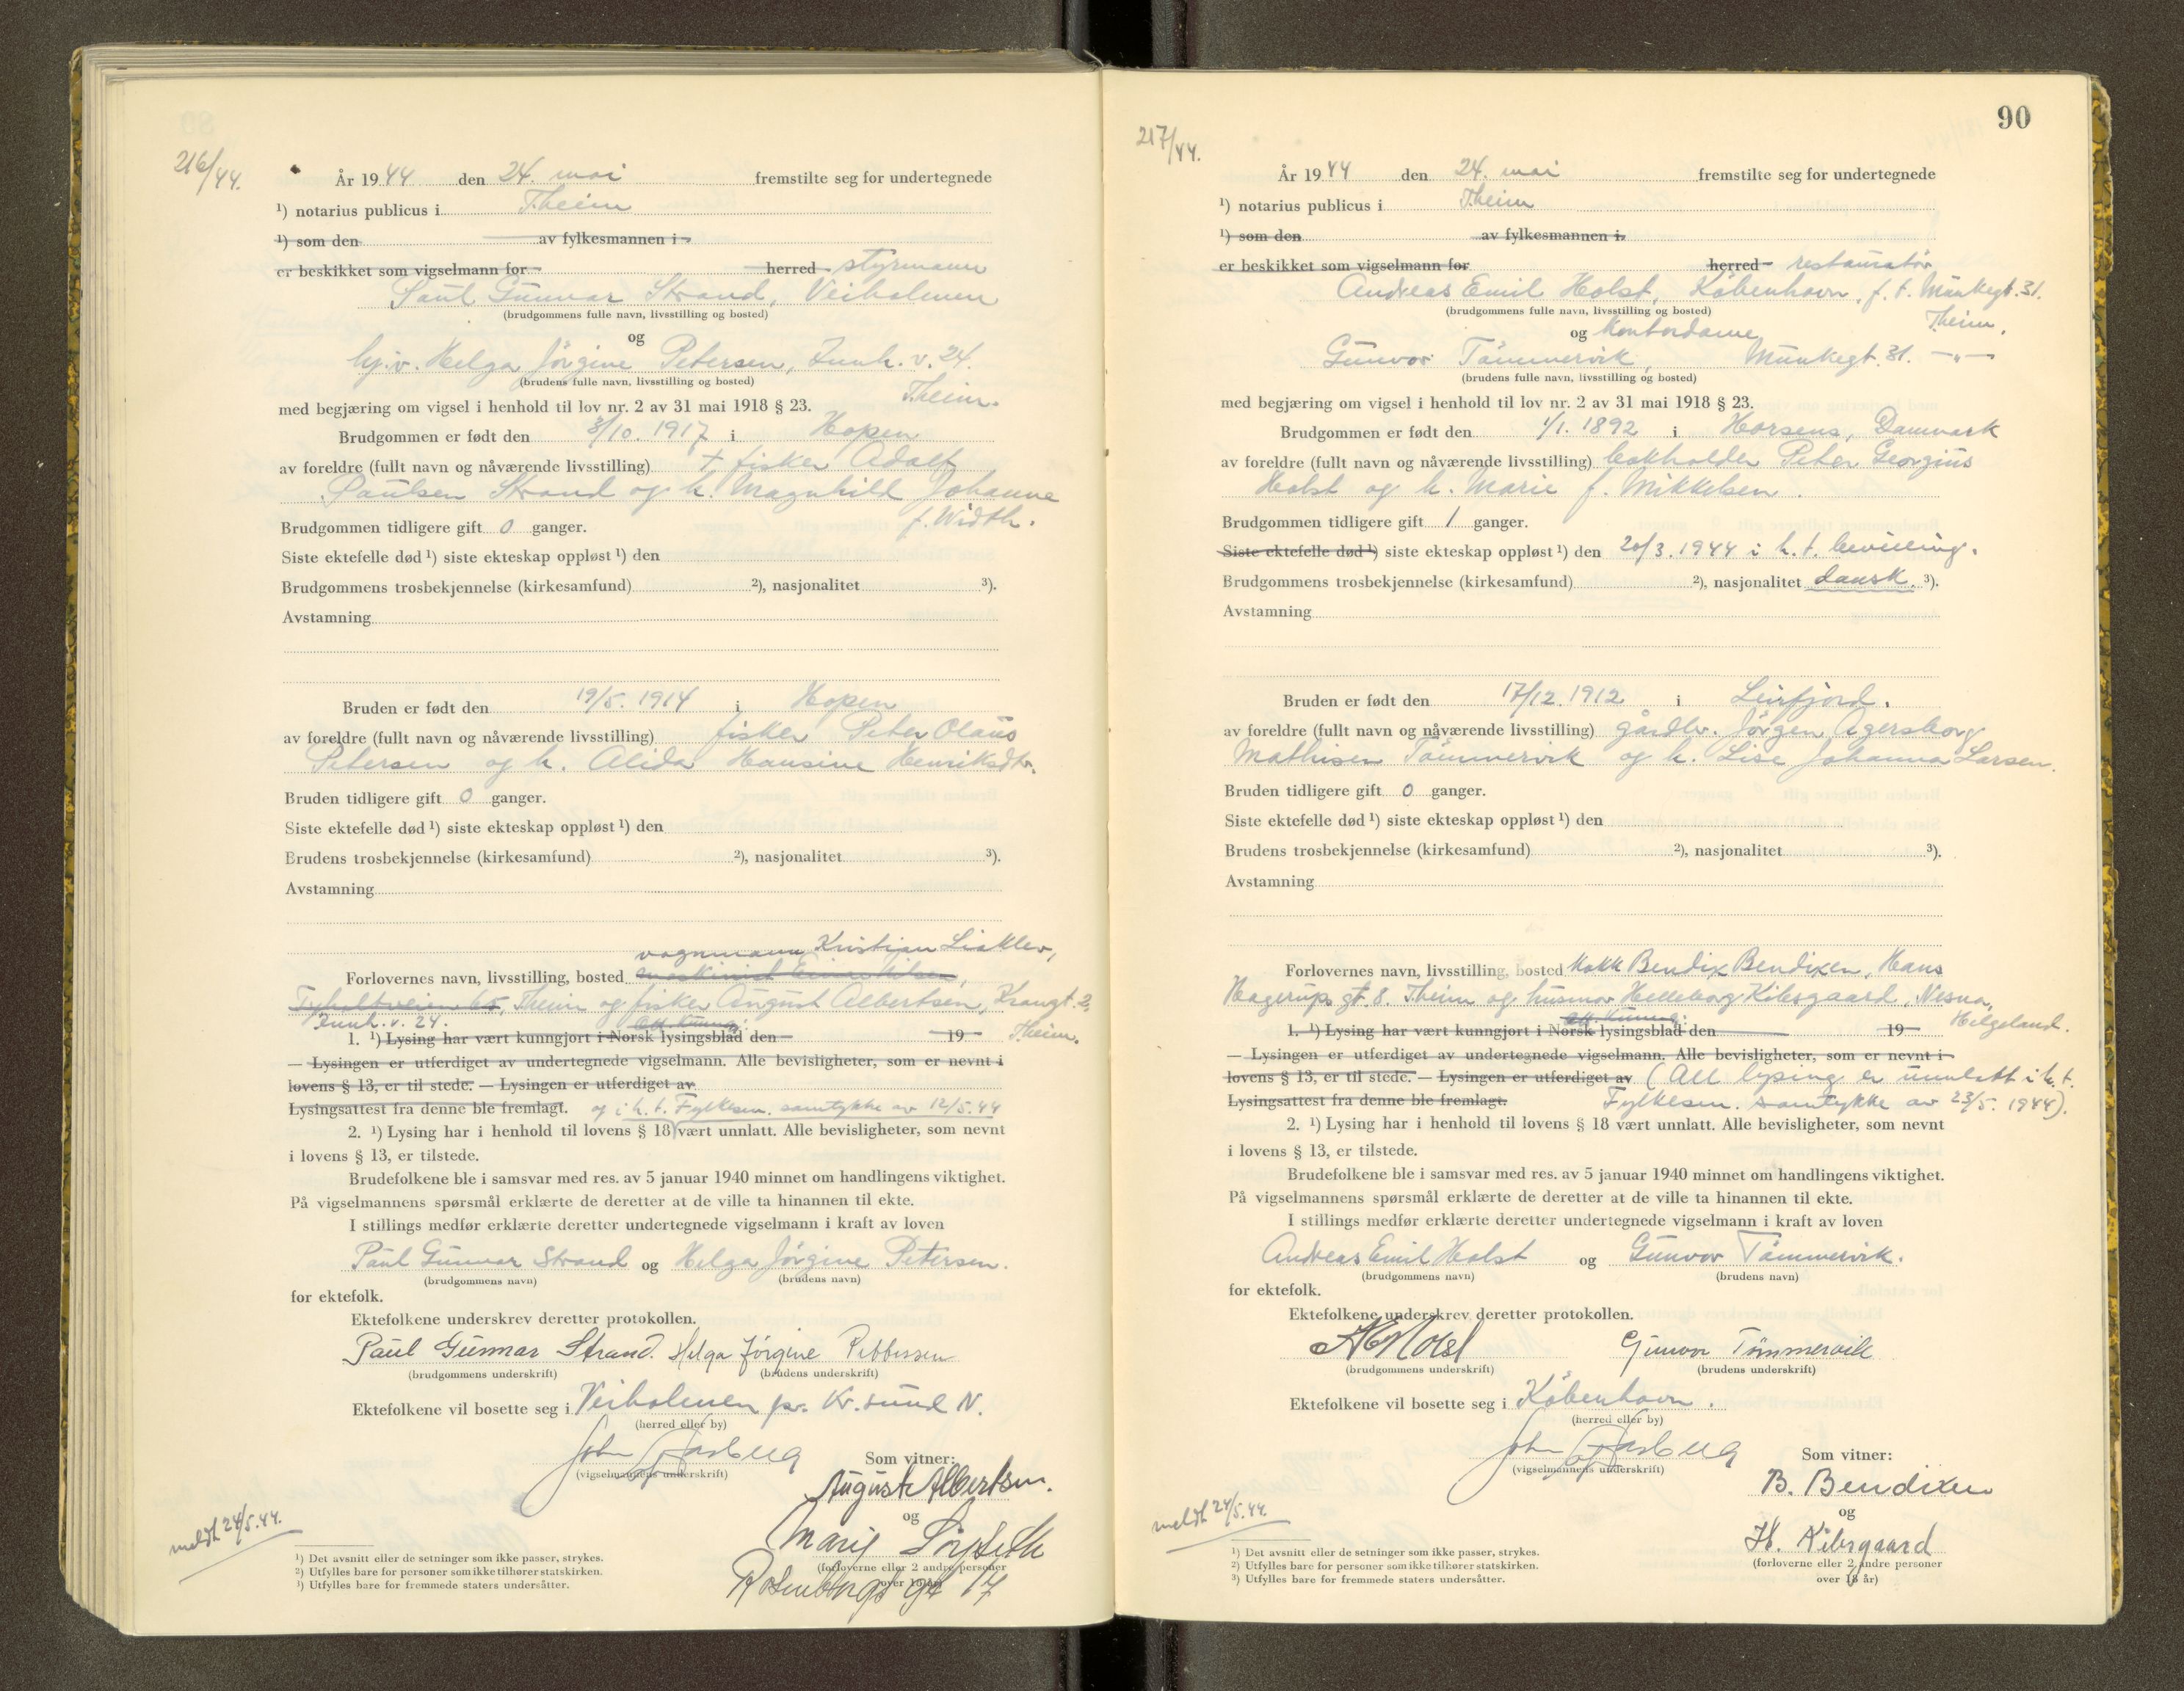 216/44.
År 1944 den 24. mai fremstilte seg for undertegnede
¹) notarius publicus i T.heim
¹) som den av fylkesmannen i
er beskikket som vigselmann for herred styrmann
Paul Gunnar Strand, Veiholmen
(brudgommens fulle navn, livsstilling og bosted)
og
hj.v. Helga Jörgine Petersen, Innh. v. 24.
(brudens fulle navn, livsstilling og bosted)
T.heim.
med begjæring om vigsel i henhold til lov nr. 2 av 31 mai 1918 § 23.
Brudgommen er født den 3/10. 1917 i Hopen
av foreldre (fullt navn og nåværende livsstilling) + fisker Adolf
Paulsen Strand og h. Magnhild Johanne
f. Width.
Brudgommen tidligere gift 0 ganger.
Siste ektefelle død ¹) siste ekteskap oppløst ¹) den
Brudgommens trosbekjennelse (kirkesamfund) ²), nasjonalitet ³).
Avstamning
Bruden er født den 19/5. 1914 i Hopen
av foreldre (fullt navn og nåværende livsstilling) fisker Peter Olaus
Petersen og h. Alida Hansine Henriksdtr.
Bruden tidligere gift 0 ganger.
Siste ektefelle død ¹) siste ekteskap oppløst ¹) den
Brudens trosbekjennelse (kirkesamfund) ²), nasjonalitet ³).
Avstamning
vognmann Kristian Liaklev,
Forlovernes navn, livsstilling, bosted maskinist Einar Nilsen,
Tyholtveien 65, Theim og fisker August Albertsen, Krangt. 2,
Innh. v. 24.
T.heim.
1. ¹) Lysing har vært kunngjort i Norsk lysingsblad den 19
— Lysingen er utferdiget av undertegnede vigselmann. Alle bevisligheter, som er nevnt i
lovens § 13, er til stede. — Lysingen er utferdiget av
Lysingsattest fra denne ble fremlagt. og i h. t. Fylkesm. samtykke av 12/5.44
2. ¹) Lysing har i henhold til lovens § 18 vært unnlatt. Alle bevisligheter, som nevnt
i lovens § 13, er tilstede.
Brudefolkene ble i samsvar med res. av 5 januar 1940 minnet om handlingens viktighet.
På vigselmannens spørsmål erklærte de deretter at de ville ta hinannen til ekte.
I stillings medfør erklærte deretter undertegnede vigselmann i kraft av loven
Paul Gunnar Strand og Helga Jörgine Petersen.
(brudgommens navn) (brudens navn)
for ektefolk.
Ektefolkene underskrev deretter protokollen.
Paul Gunnar Strand. Helga Jörgine Pettersen
(brudgommens underskrift) (brudens underskrift)
Ektefolkene vil bosette seg i Veiholmen pr. Kr.sund N.
(herred eller by)
John Aasberg
(vigselmannens underskrift)
Som vitner:
August Albertsen.
og
Marij
(forloverne eller 2 andre personer
over 18 år)
Rosenborgs gt 17
meldt 24/5.44.
¹) Det avsnitt eller de setninger som ikke passer, strykes.
²) Utfylles bare for personer som ikke tilhører statskirken.
³) Utfylles bare for fremmede staters undersåtter.
90
217/44.
År 1944 den 24. mai fremstilte seg for undertegnede
¹) notarius publicus i T.heim
¹) som den av fylkesmannen i
er beskikket som vigselmann for herred restauratör
Andreas Emil Holst, Köbenhavn, f. t. Munkegt. 31.
(brudgommens fulle navn, livsstilling og bosted)
T.heim.
og kontordame
Gunvor Tömmervik, Munkegt. 31. —„—
(brudens fulle navn, livsstilling og bosted)
med begjæring om vigsel i henhold til lov nr. 2 av 31 mai 1918 § 23.
Brudgommen er født den 1/1. 1892 i Horsens, Danmark
av foreldre (fullt navn og nåværende livsstilling) bokholder Peter Georgius
Holst og h. Marie f. Mikkelsen.
Brudgommen tidligere gift 1 ganger.
Siste ektefelle død ¹) siste ekteskap oppløst ¹) den 20/3. 1944 i h. t. bevilling.
Brudgommens trosbekjennelse (kirkesamfund) ²), nasjonalitet dansk. ³).
Avstamning
Bruden er født den 17/12. 1912 i Leirfjord.
av foreldre (fullt navn og nåværende livsstilling) gårdbr. Jörgen Agersborg
Mathisen Tömmervik og h. Lise Johanna Larsen.
Bruden tidligere gift 0 ganger.
Siste ektefelle død ¹) siste ekteskap oppløst ¹) den
Brudens trosbekjennelse (kirkesamfund) ²), nasjonalitet ³).
Avstamning
Forlovernes navn, livsstilling, bosted kokk Bendix Bendixen, Hans
Hagerups gt. 8. T.heim og husmor Helleborg Kibsgaard, Nesna,
Helgeland.
1. ¹) Lysing har vært kunngjort i Norsk lysingsblad den 19
— Lysingen er utferdiget av undertegnede vigselmann. Alle bevisligheter, som er nevnt i
lovens § 13, er til stede. — Lysingen er utferdiget av (All lysing er unnlatt i h. t.
Lysingsattest fra denne ble fremlagt. Fylkesm. samtykke av 23/5. 1944).
2. ¹) Lysing har i henhold til lovens § 18 vært unnlatt. Alle bevisligheter, som nevnt
i lovens § 13, er tilstede.
Brudefolkene ble i samsvar med res. av 5 januar 1940 minnet om handlingens viktighet.
På vigselmannens spørsmål erklærte de deretter at de ville ta hinannen til ekte.
I stillings medfør erklærte deretter undertegnede vigselmann i kraft av loven
Andreas Emil Holst og Gunvor Tömmervik.
(brudgommens navn) (brudens navn)
for ektefolk.
Ektefolkene underskrev deretter protokollen.
AEHolst Gunvor Tömmervik
(brudgommens underskrift) (brudens underskrift)
Ektefolkene vil bosette seg i Köbenhavn.
(herred eller by)
John Aasberg
(vigselmannens underskrift)
Som vitner:
B. Bendixen
og
H. Kibsgaard
(forloverne eller 2 andre personer
over 18 år)
meldt 24/5.44.
¹) Det avsnitt eller de setninger som ikke passer, strykes.
²) Utfylles bare for personer som ikke tilhører statskirken.
³) Utfylles bare for fremmede staters undersåtter.